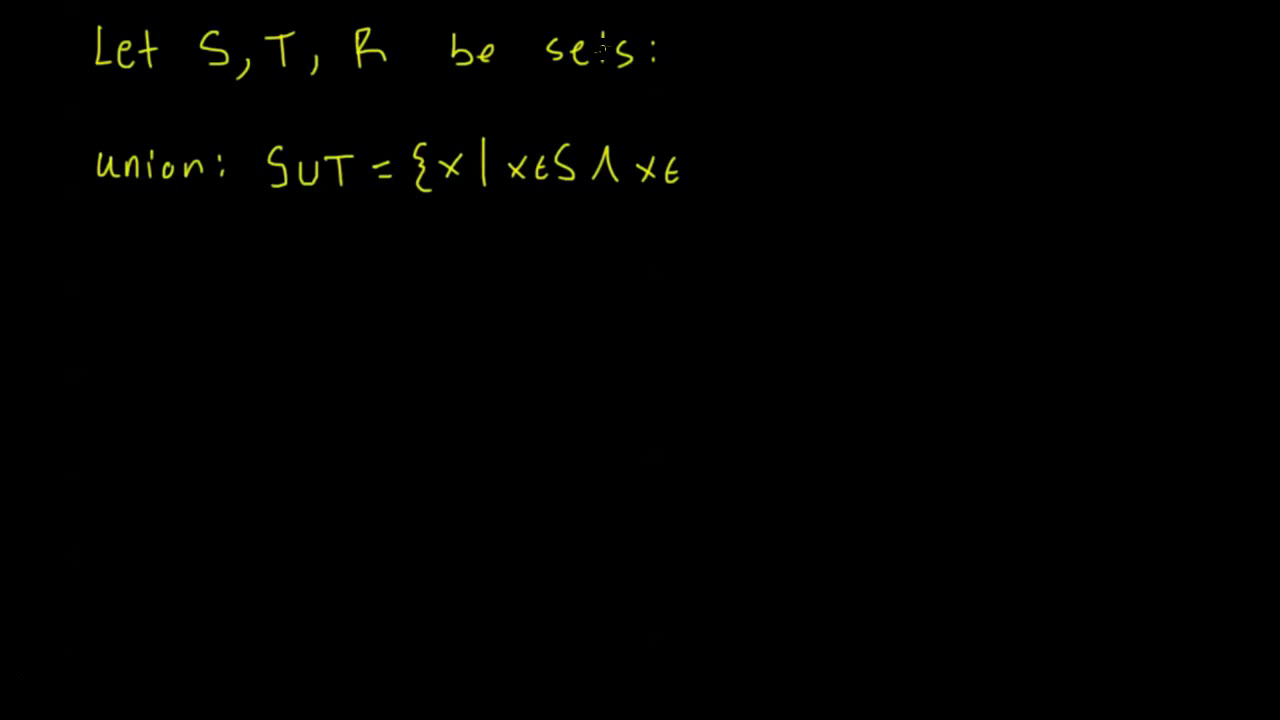 Let S, T, R be sets:
union: S∪T = {x | x∈S ∧ x∈